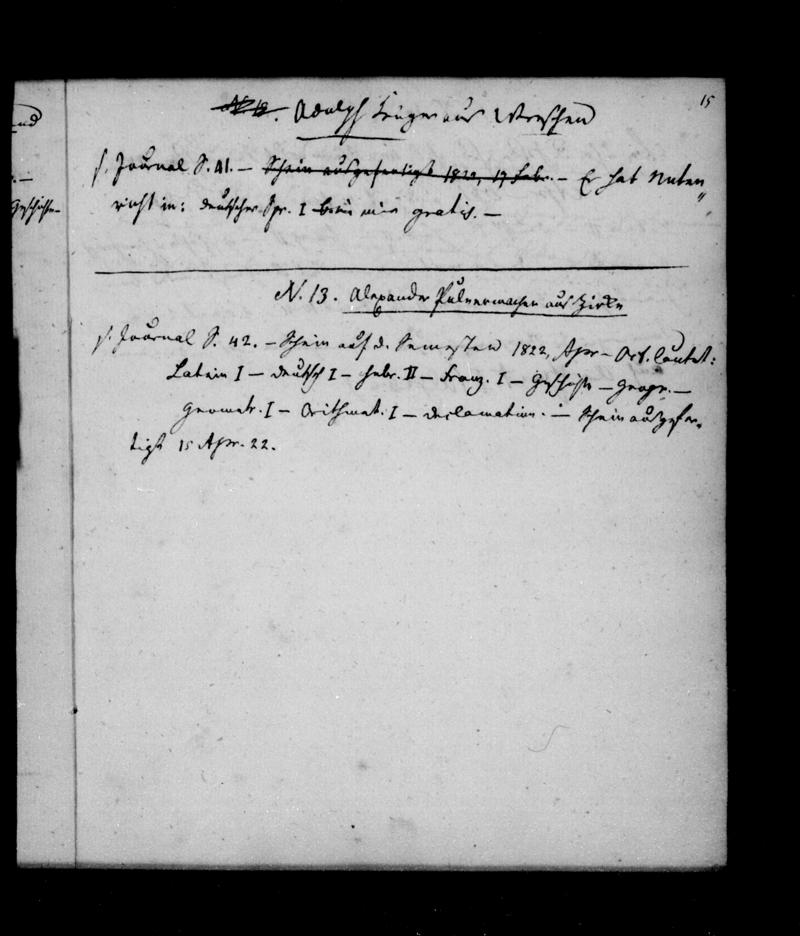 15
N. 12. Adolph Krüger aus Wreschen
s. Journal S. 41. – Schein ausgefertigt 1822, 19 Febr. – Er hat Unter„
richt in: deutscher Spr. I bei mir gratis. –
N. 13. Alexander Pulvermacher aus Zirke
s. Journal S. 42. – Schein auf d. Semester 1822, Apr – Oct. lautet:
Latein I – deutsch I – hebr. II – Franz. I – Geschichte – Geogr. –
Geometr. I – Arithmet. I – Declamation. – Schein ausgefer„
tigt 15 Apr. 22.